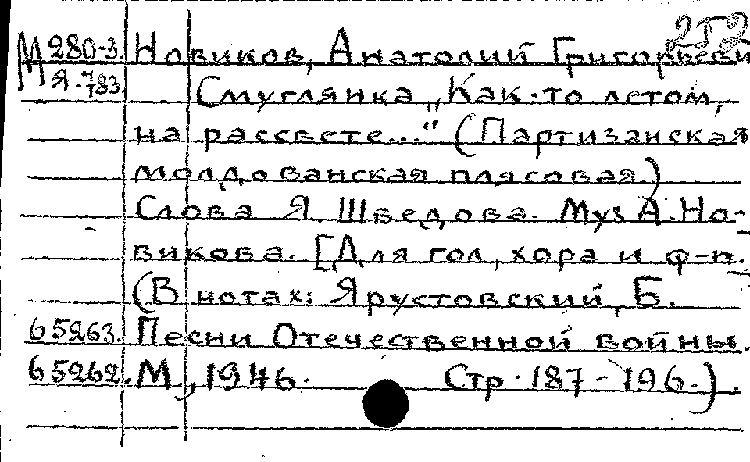 252
М 280-3. Новиков, Анатолий Григорьеви
Я.-783 Смуглянка „Как-то летом,
на рассвете..." (Партизанская
молдованская плясовая)
Слова Я. Шведова. Муз. А. Но-
викова. [Для гол., хора и ф-п.
(В нотах: Ярустовский, Б.
65263. Песни Отечественной войны.
65262. М., 1946. Стр. 187-196.).